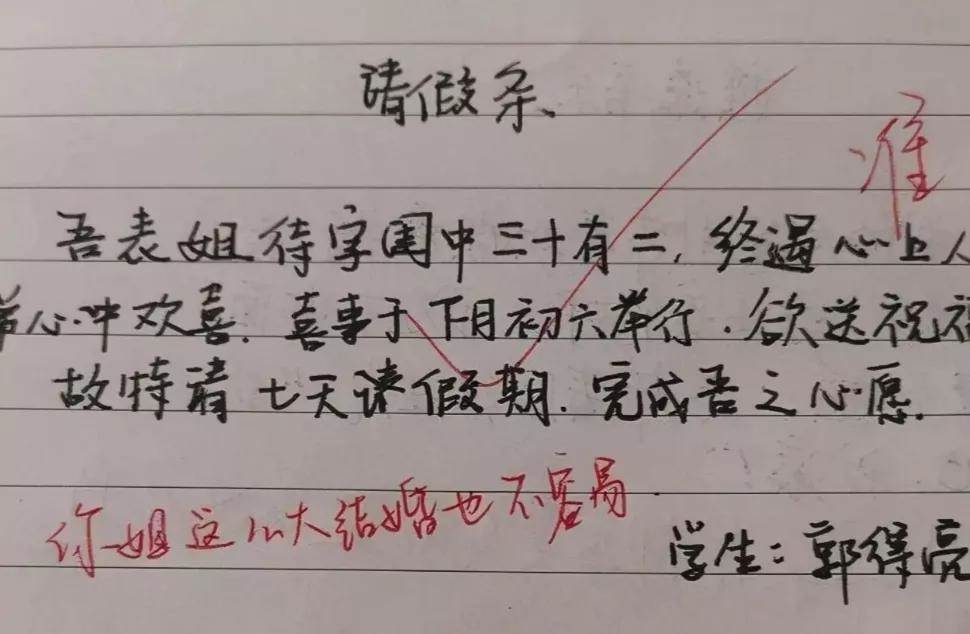 请假条、
准
吾表姐待字闺中三十有二，终遇心上人
吾心中欢喜．喜事于下月初六举行．欲送祝福
故特请七天请假期．完成吾之心愿．
你姐这么大结婚也不容易．
学生：郭得亮